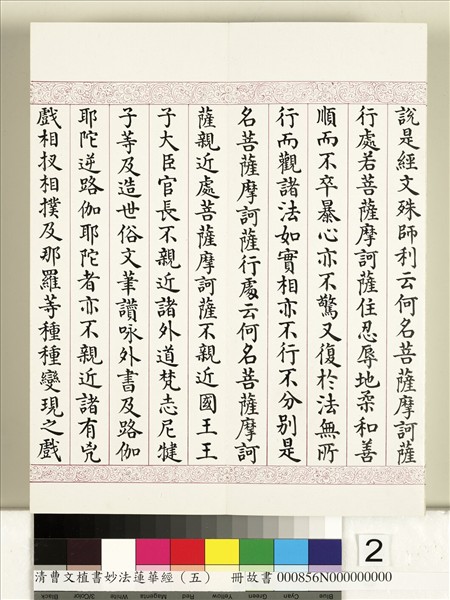 說是經文殊師利云何名菩薩摩訶薩
行處若菩薩摩訶薩住忍辱地柔和善
順而不卒暴心亦不驚又復於法無所
行而觀諸法如實相亦不行不分別是
名菩薩摩訶薩行處云何名菩薩摩訶
薩親近處菩薩摩訶薩不親近國王王
子大臣官長不親近諸外道梵志尼揵
子等及造世俗文筆讚咏外書及路伽
耶陀逆路伽耶陀者亦不親近諸有兇
戲相扠相撲及那羅等種種變現之戲
2
清曹文植書妙法蓮華經（五） 冊故書 000856N000000000
Black 3/Color White Magenta Red Yellow Green Cyan Blue